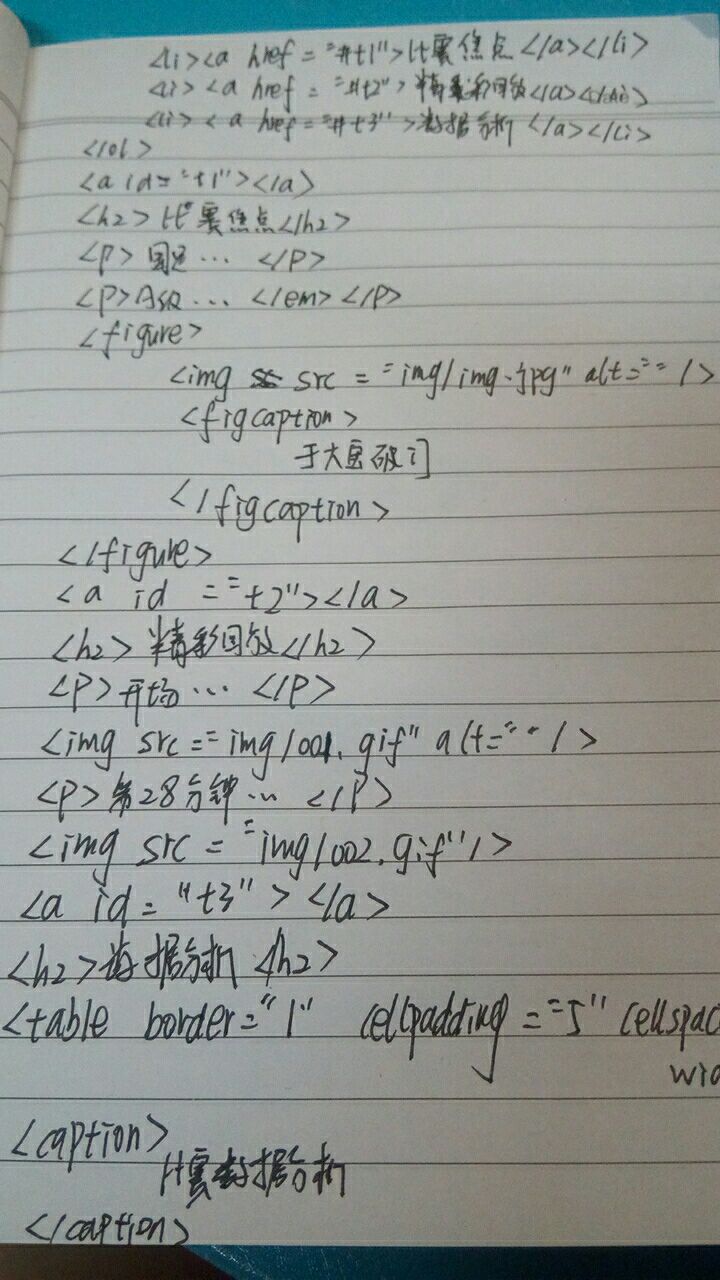 <li><a href="#t1">比赛焦点</a></li>
<li><a href="#t2">精彩回放</a></li>
<li><a href="#t3">数据分析</a></li>
</ol>
<a id="t1"></a>
<h2>比赛焦点</h2>
<p>国足… </p>
<p>A级… </em></p>
<figure>
<img src="img/img.jpg" alt=""/>
<figcaption>
于大宝破门
</figcaption>
</figure>
<a id="t2"></a>
<h2>精彩回放</h2>
<p>开场… </p>
<img src="img/001.gif" alt=""/>
<p>第28分钟… </p>
<img src="img/002.gif"/>
<a id="t3"></a>
<h2>数据分析<h2>
<table border="1" cellpadding="5" cellspac
wid
<caption>
比赛数据分析
</caption>